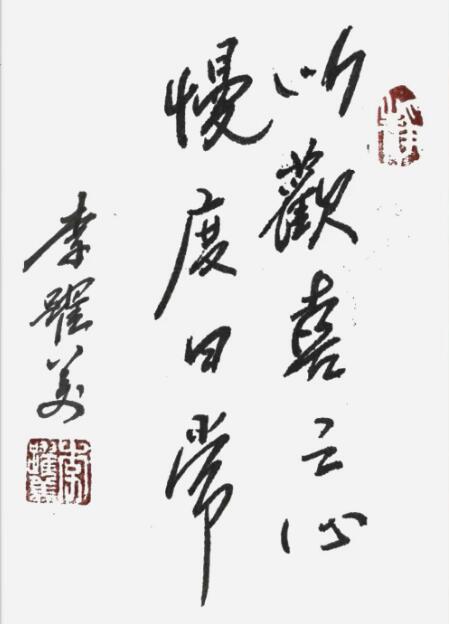 以歡喜之心
慢度日常
李躍美